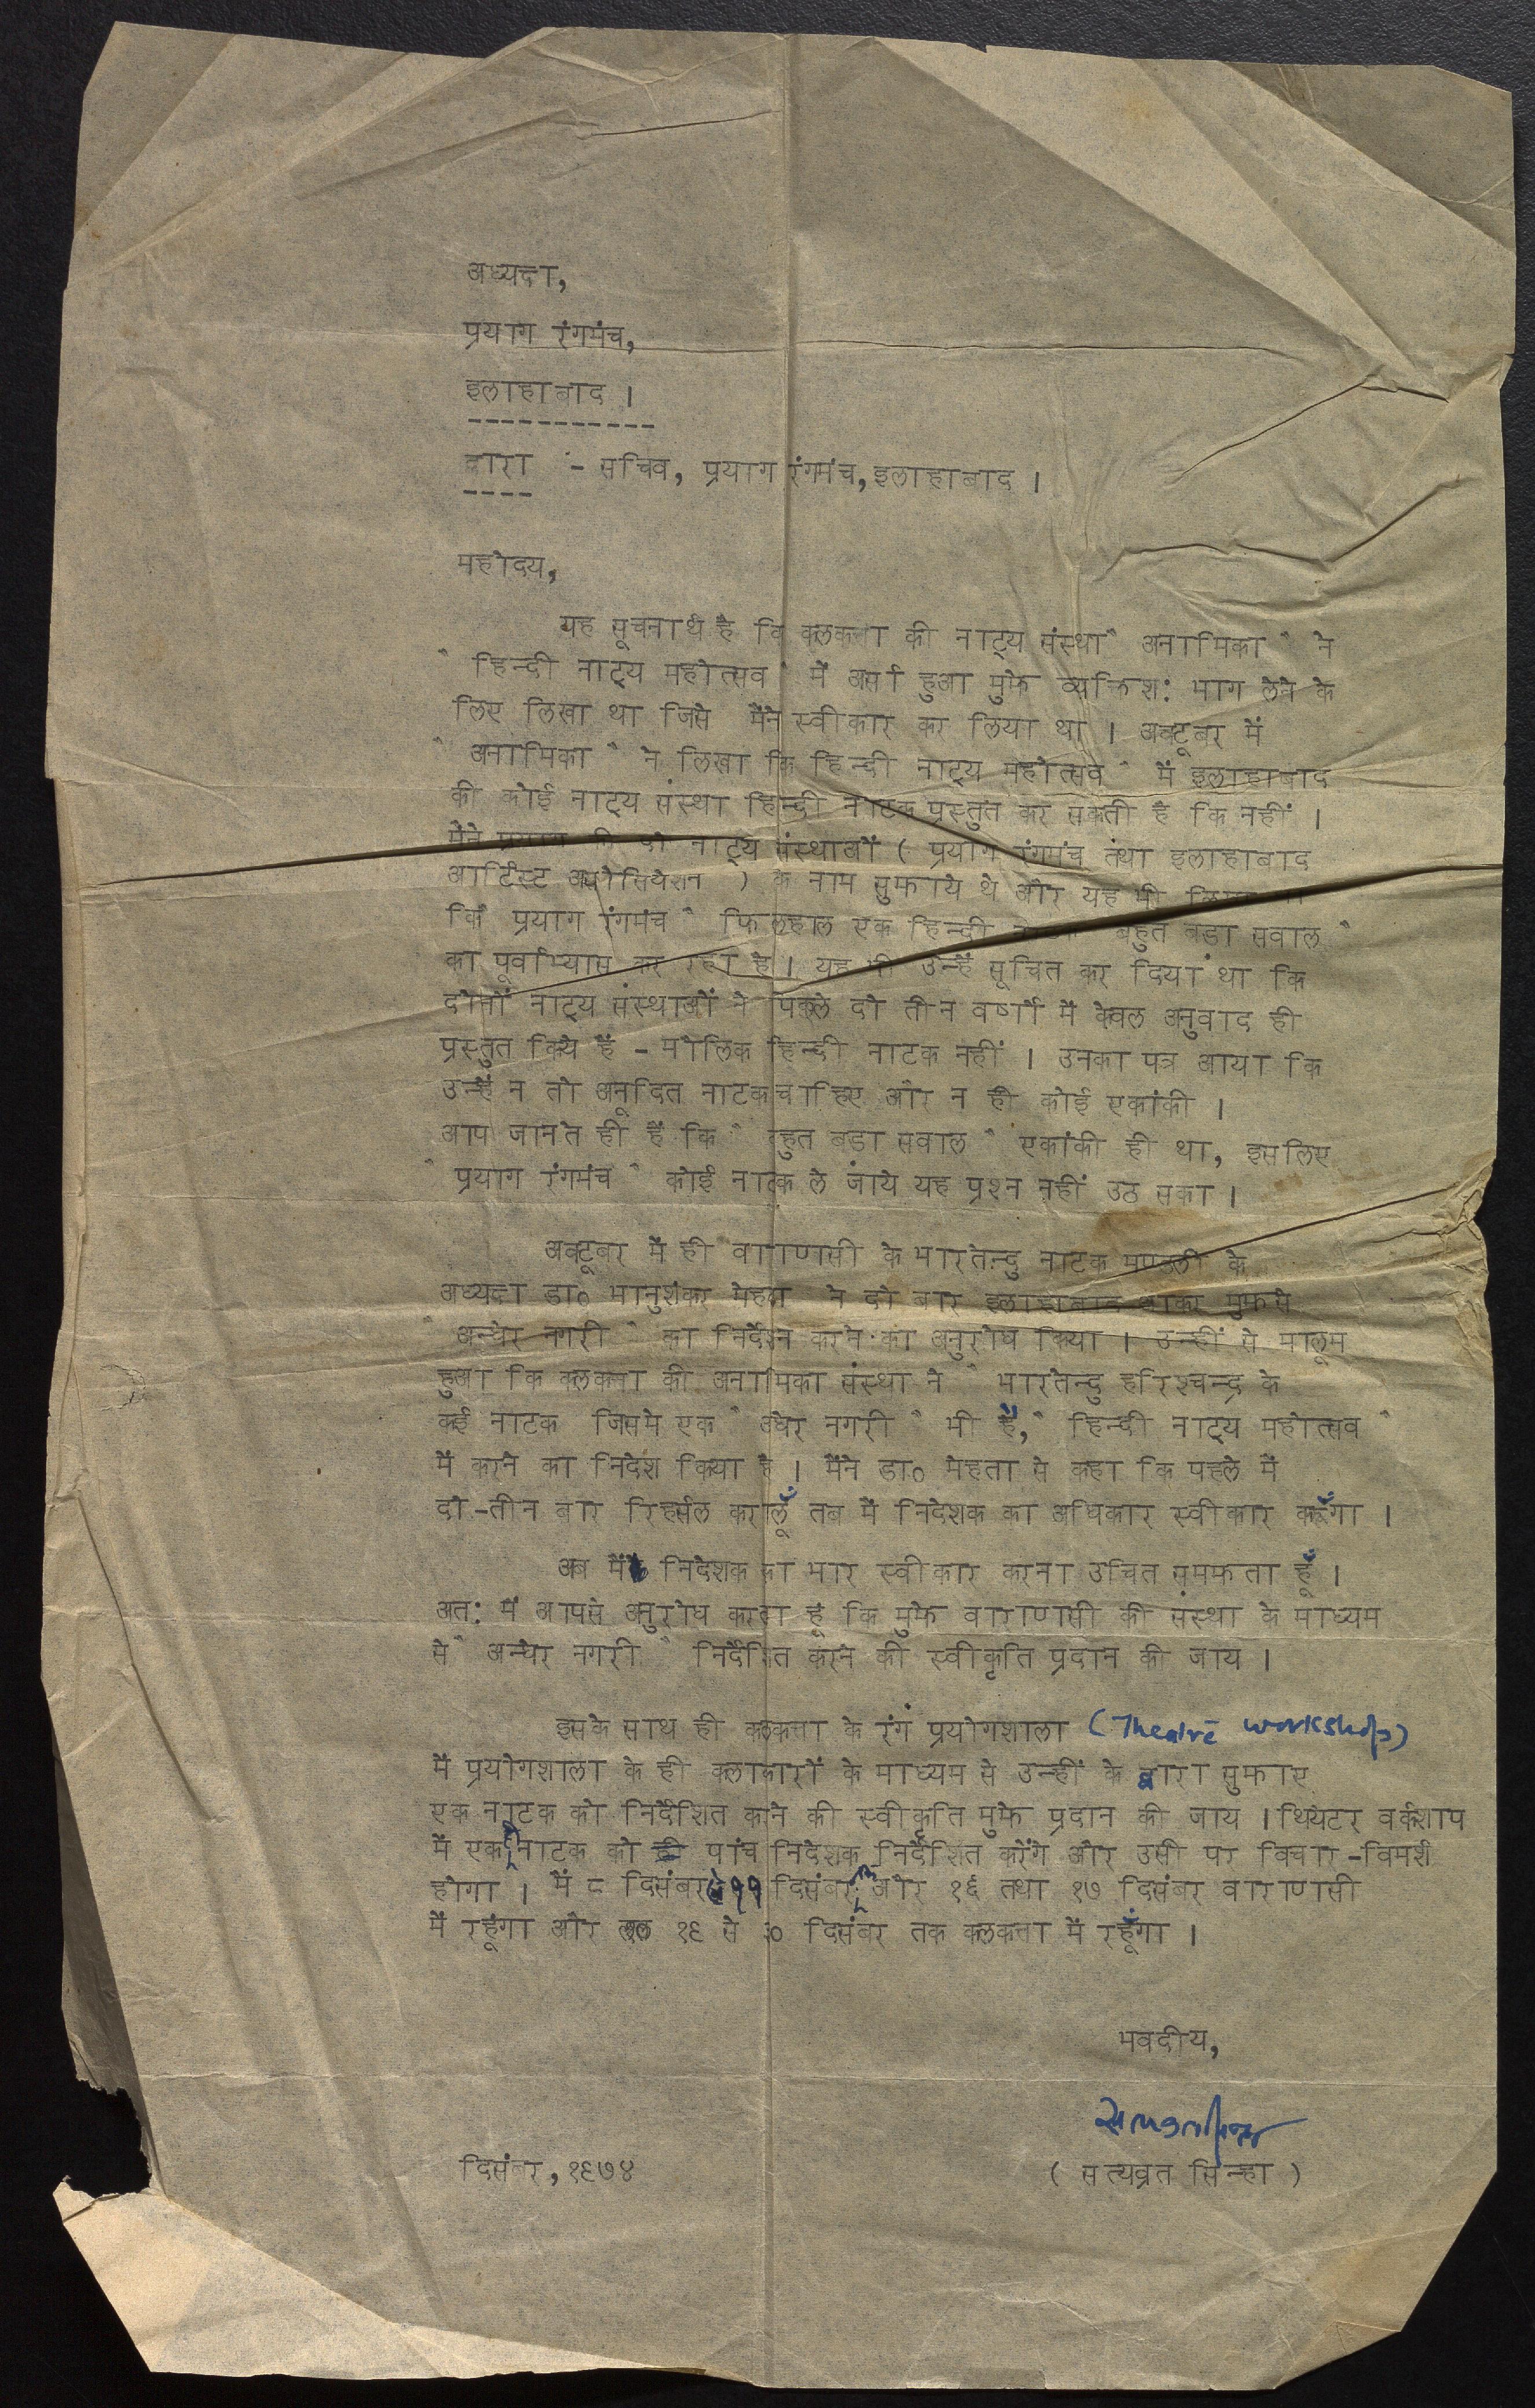 अध्यक्ष,
प्रयाग रंगमंच,
इलाहाबाद ।
द्वारा :- सचिव, प्रयाग रंगमंच, इलाहाबाद ।
महोदय,
यह सूचनार्थ है कि कलकत्ता की नाट्य संस्था " अनामिका " ने
" हिन्दी नाट्य महोत्सव " में अर्सा हुआ मुझे व्यक्तिश: भाग लेने के
लिए लिखा था जिसे मैंने स्वीकार कर लिया था । अक्टूबर में
" अनामिका " ने लिखा कि हिन्दी नाट्य महोत्सव " में इलाहाबाद
की कोई नाट्य संस्था हिन्दी नाटक प्रस्तुत कर सकती है कि नहीं ।
मैंने नाट्य संस्थाओं ( प्रयाग रंगमंच तथा इलाहाबाद
आर्टिस्ट असोसियेशन ) के नाम सुझाये थे और यह भी
कि प्रयाग रंगमंच " फिलहाल एक हिन्दी बहुत बडा सवाल "
का पूर्वाभ्यास कर रहा है । यह भी उन्हें सूचित कर दिया था कि
दोनों नाट्य संस्थाओं ने पिछले दो तीन वर्षों में केवल अनुवाद ही
प्रस्तुत किये हैं - मौलिक हिन्दी नाटक नहीं । उनका पत्र आया कि
उन्हें न तो अनूदित नाटक चाहिए और न ही कोई एकांकी ।
आप जानते ही हैं कि " बहुत बडा सवाल " एकांकी ही था, इसलिए
" प्रयाग रंगमंच " कोई नाटक ले जाये यह प्रश्न नहीं उठ सका ।
अक्टूबर में ही वाराणसी के भारतेन्दु नाटक मण्डली के
अध्यक्ष डा० भानुशंकर मेहता ने दो बार इलाहाबाद आकर मुझसे
" अन्धेर नगरी " का निर्देशन करने का अनुरोध किया । उन्हीं से मालूम
हुआ कि कलकत्ता की अनामिका संस्था ने " भारतेन्दु हरिश्चन्द्र के
कई नाटक जिसमें एक " अंधेर नगरी " भी है, " हिन्दी नाट्य महोत्सव "
में करने का निर्देश किया है । मैंने डा० मेहता से कहा कि पहले मैं
दो-तीन बार रिहर्सल करालूँ तब मैं निदेशक का अधिकार स्वीकार करूँगा ।
अब मैं निदेशक का भार स्वीकार करना उचित समझता हूँ ।
अत: मैं आपसे अनुरोध करता हूं कि मुझे वाराणसी की संस्था के माध्यम
से " अन्धेर नगरी " निर्देशित करने की स्वीकृति प्रदान की जाय ।
इसके साथ ही कलकत्ता के रंग प्रयोगशाला (Theatre workshop)
में प्रयोगशाला के ही कलाकारों के माध्यम से उन्हीं के द्वारा सुझाए
एक नाटक को निर्देशित करने की स्वीकृति मुझे प्रदान की जाय । थियेटर वर्कशाप
में एक ही नाटक को पांच निदेशक निर्देशित करेंगे और उसी पर विचार-विमर्श
होगा । मैं ८ दिसंबर से ११ दिसंबर और १६ तथा १७ दिसंबर वाराणसी
में रहूंगा और १९ से ३० दिसंबर तक कलकत्ता में रहूँगा ।
भवदीय,
( सत्यव्रत सिन्हा )
दिसंबर, १९७४